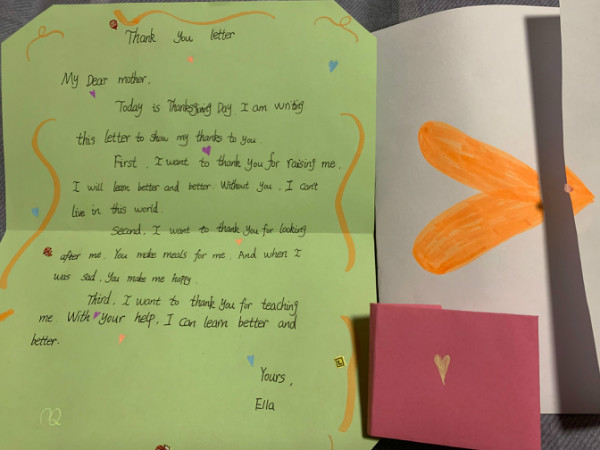 Thank You letter
My Dear mother,
Today is Thanksgiving Day I am writing
this letter to show my thanks to you.
First, I want to thank you for raising me.
I will learn better and better. Without you, I can't
live in this world.
Second, I want to thank you for looking
after me. You make meals for me. And when I
was sad, you make me happy.
Third, I want to thank you for teaching
me With your help, I can learn better and
better.
Yours,
Ella